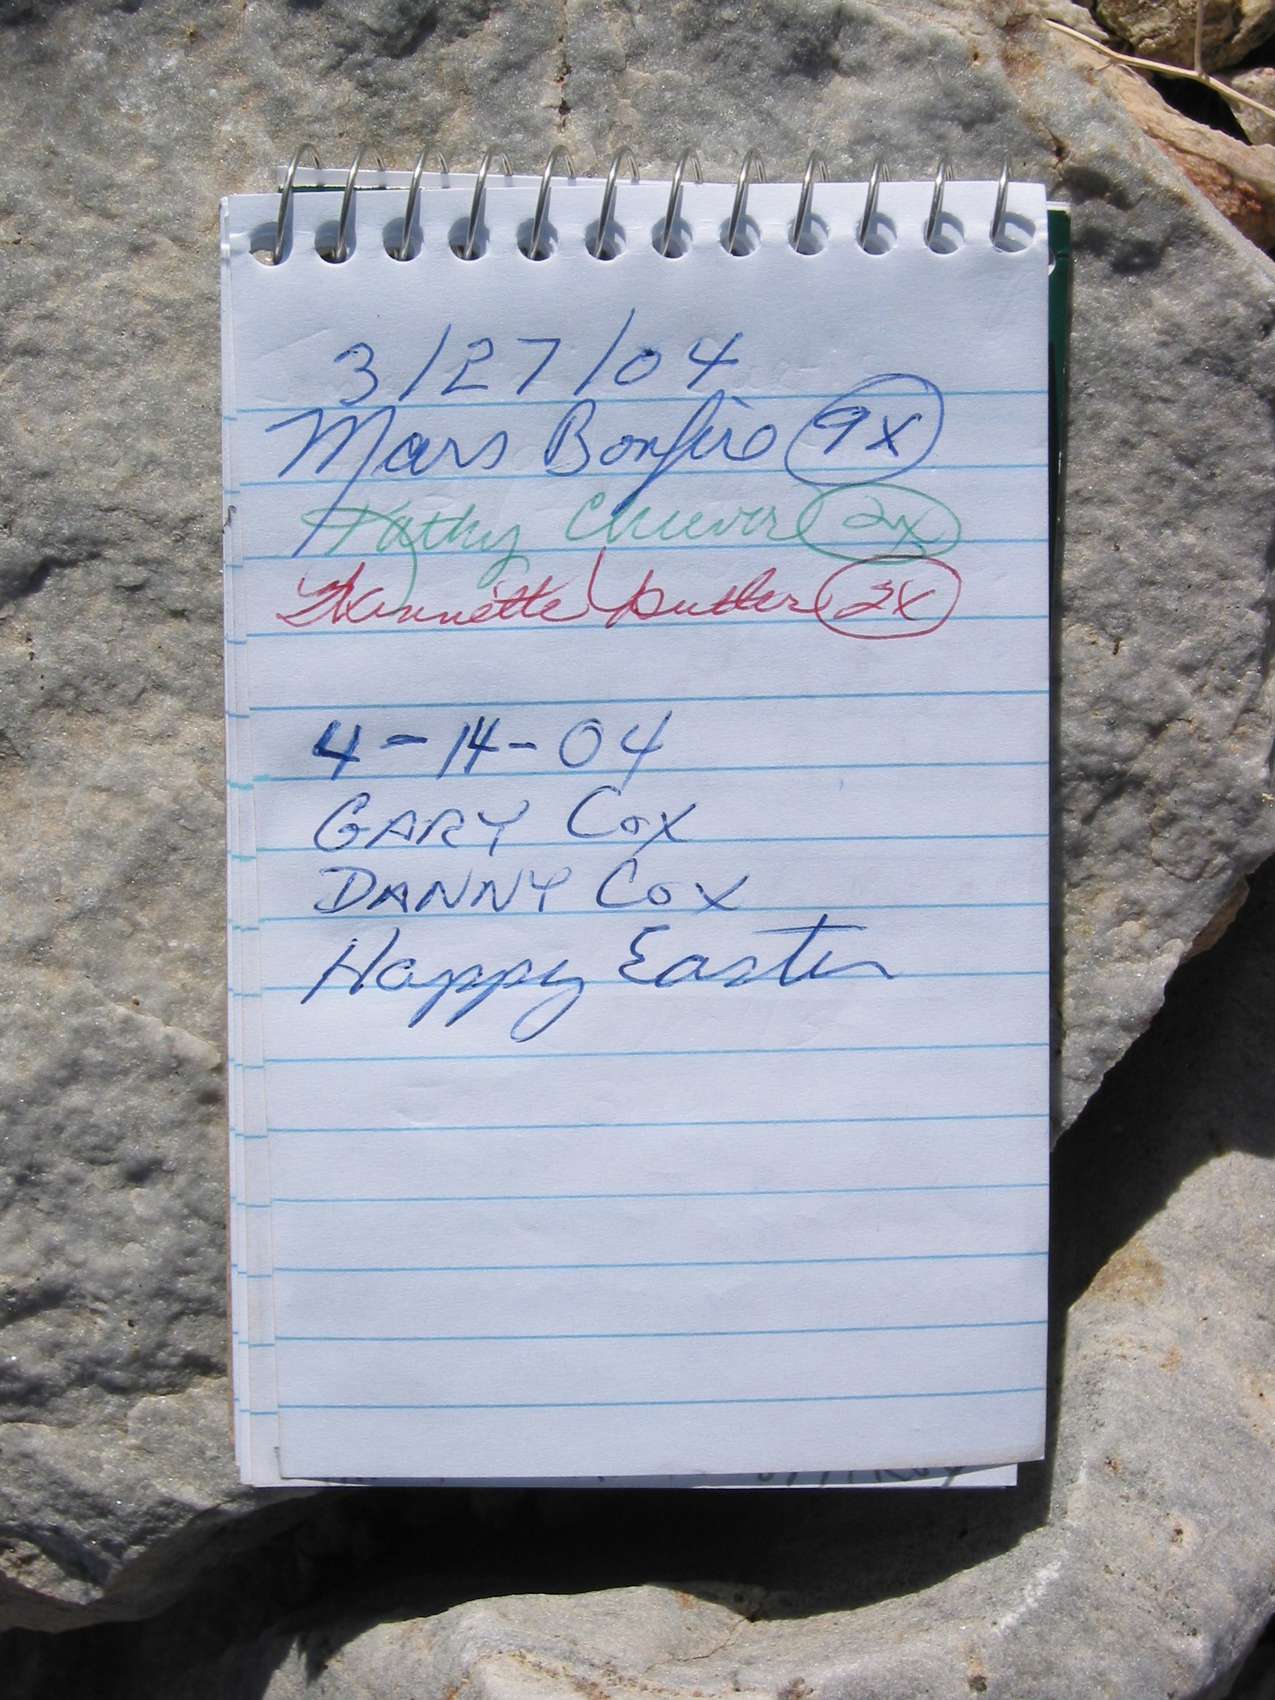 3/27/04
Mars Bonfire 9x
Kathy Cheever 2x
2x
4-14-04
GARY COX
DANNY COX
Happy Easter